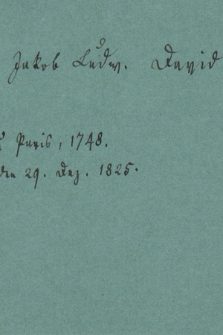 Jakob Ludw. David
Paris, 1748.
den 29. Dez. 1825.